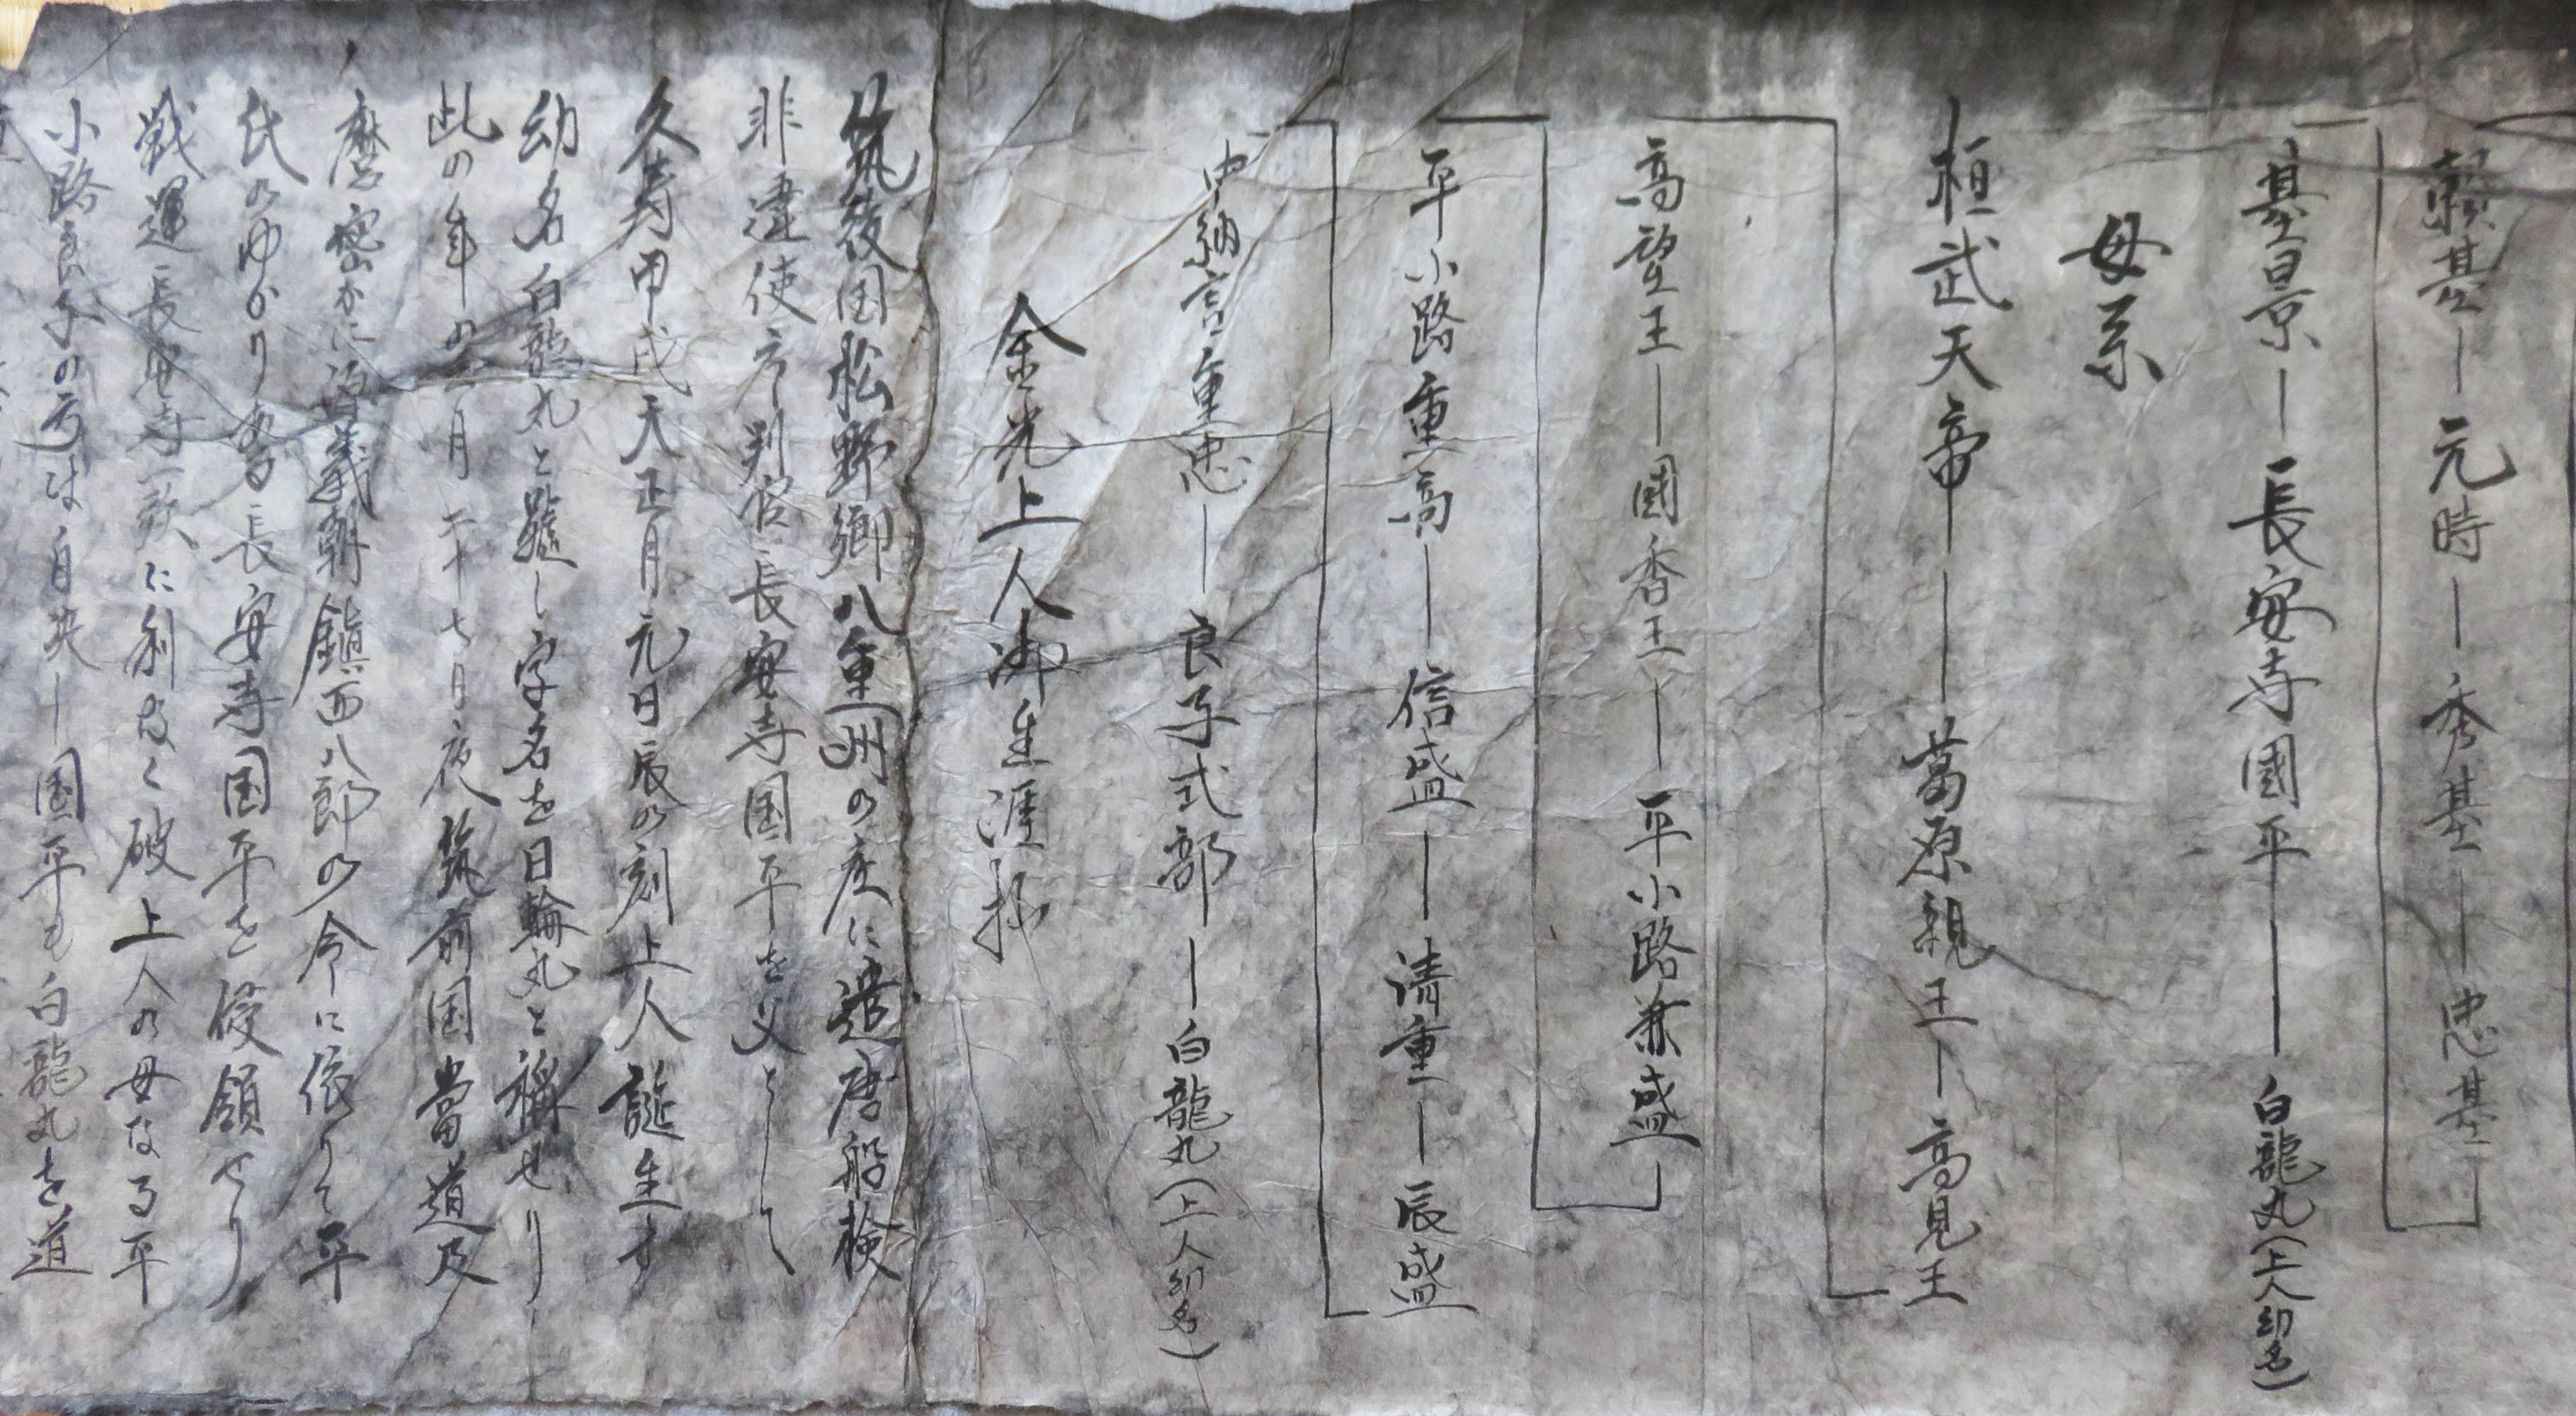 頼基―元時―秀基―忠基
基景―長安寺國平―白龍丸(上人幼名)
母系
桓武天帝――葛原親王―高見王
高望王―國香王―平小路兼盛
平小路重高―信盛―清重―辰盛
中納言重忠―良子式部―白龍丸(上人幼名)
金光上人御生涯抄
筑後国松野郷八重洲の庄に遣唐船検
非違使庁判官長安寺国平を父として
久寿甲戌天正月元日辰の刻上人誕生す
幼名白龍丸と号し字名を日輪丸と称せり
此の年の二月二十七日夜筑前国當道及
密かに源義朝鎮西八郎の令に依りて平
氏のゆかりある長安寺国平を侵領せり
戦運長安寺一族に利なく破上人の母なる平
小路良子の方は自決し国平も白龍丸を道